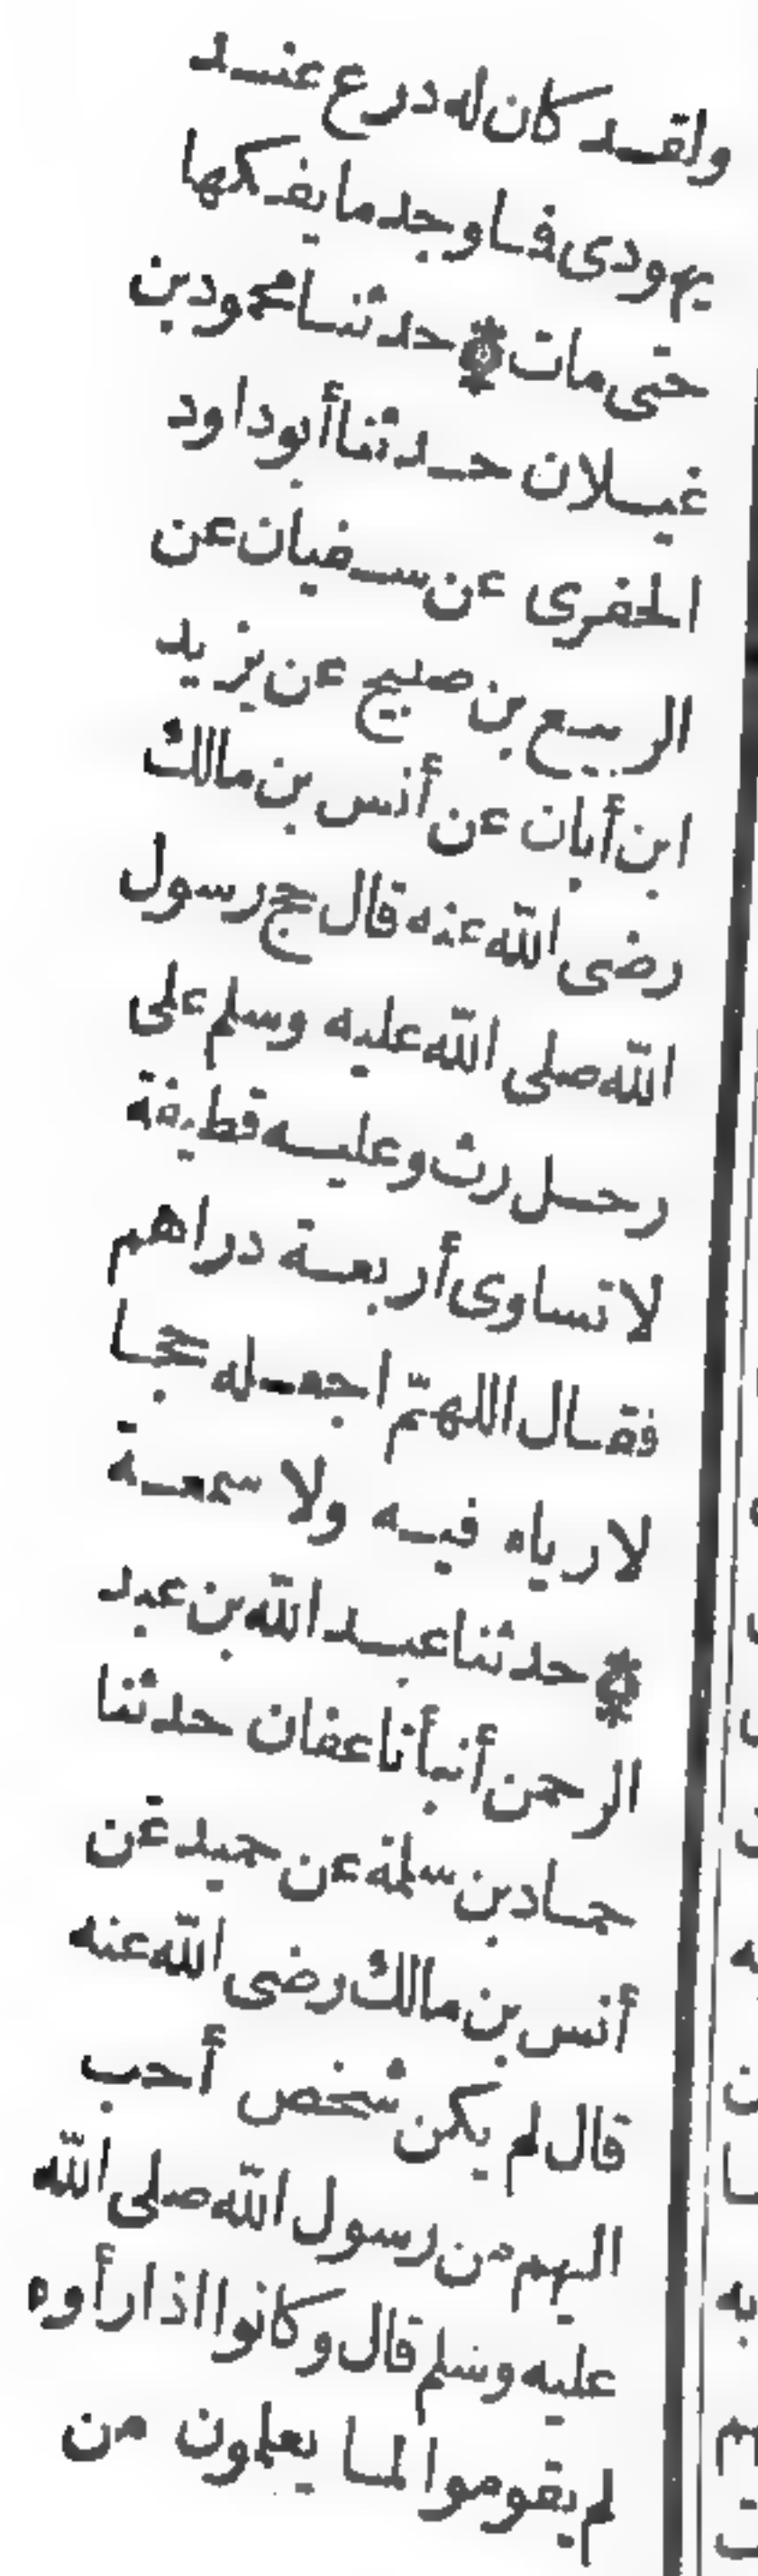 ولقد كان له درع عند
يهودى فما وجد ما يفكها
حتى مات ۞ حدثنا محمود بن
غيلان حدثنا أبو داود
الحفرى عن سفيان عن
الربيع بن صبيح عن يزيد
ابن أبان عن أنس بن مالك
رضى الله عنه قال حج رسول
الله صلى الله عليه وسلم على
رحل رث وعليه قطيفة
لا تساوى أربعة دراهم
فقال اللهمّ اجعله حجا
لا رياء فيه ولا سمعة
۞ حدثنا عبد الله بن عبد
الرحمن أنبأنا عفان حدثنا
حماد بن سلمة عن حميد عن
أنس بن مالك رضى الله عنه
قال لم يكن شخص أحب
اليهم من رسول الله صلى الله
عليه وسلم قال وكانوا اذا رأوه
لم يقوموا لما يعلمون من